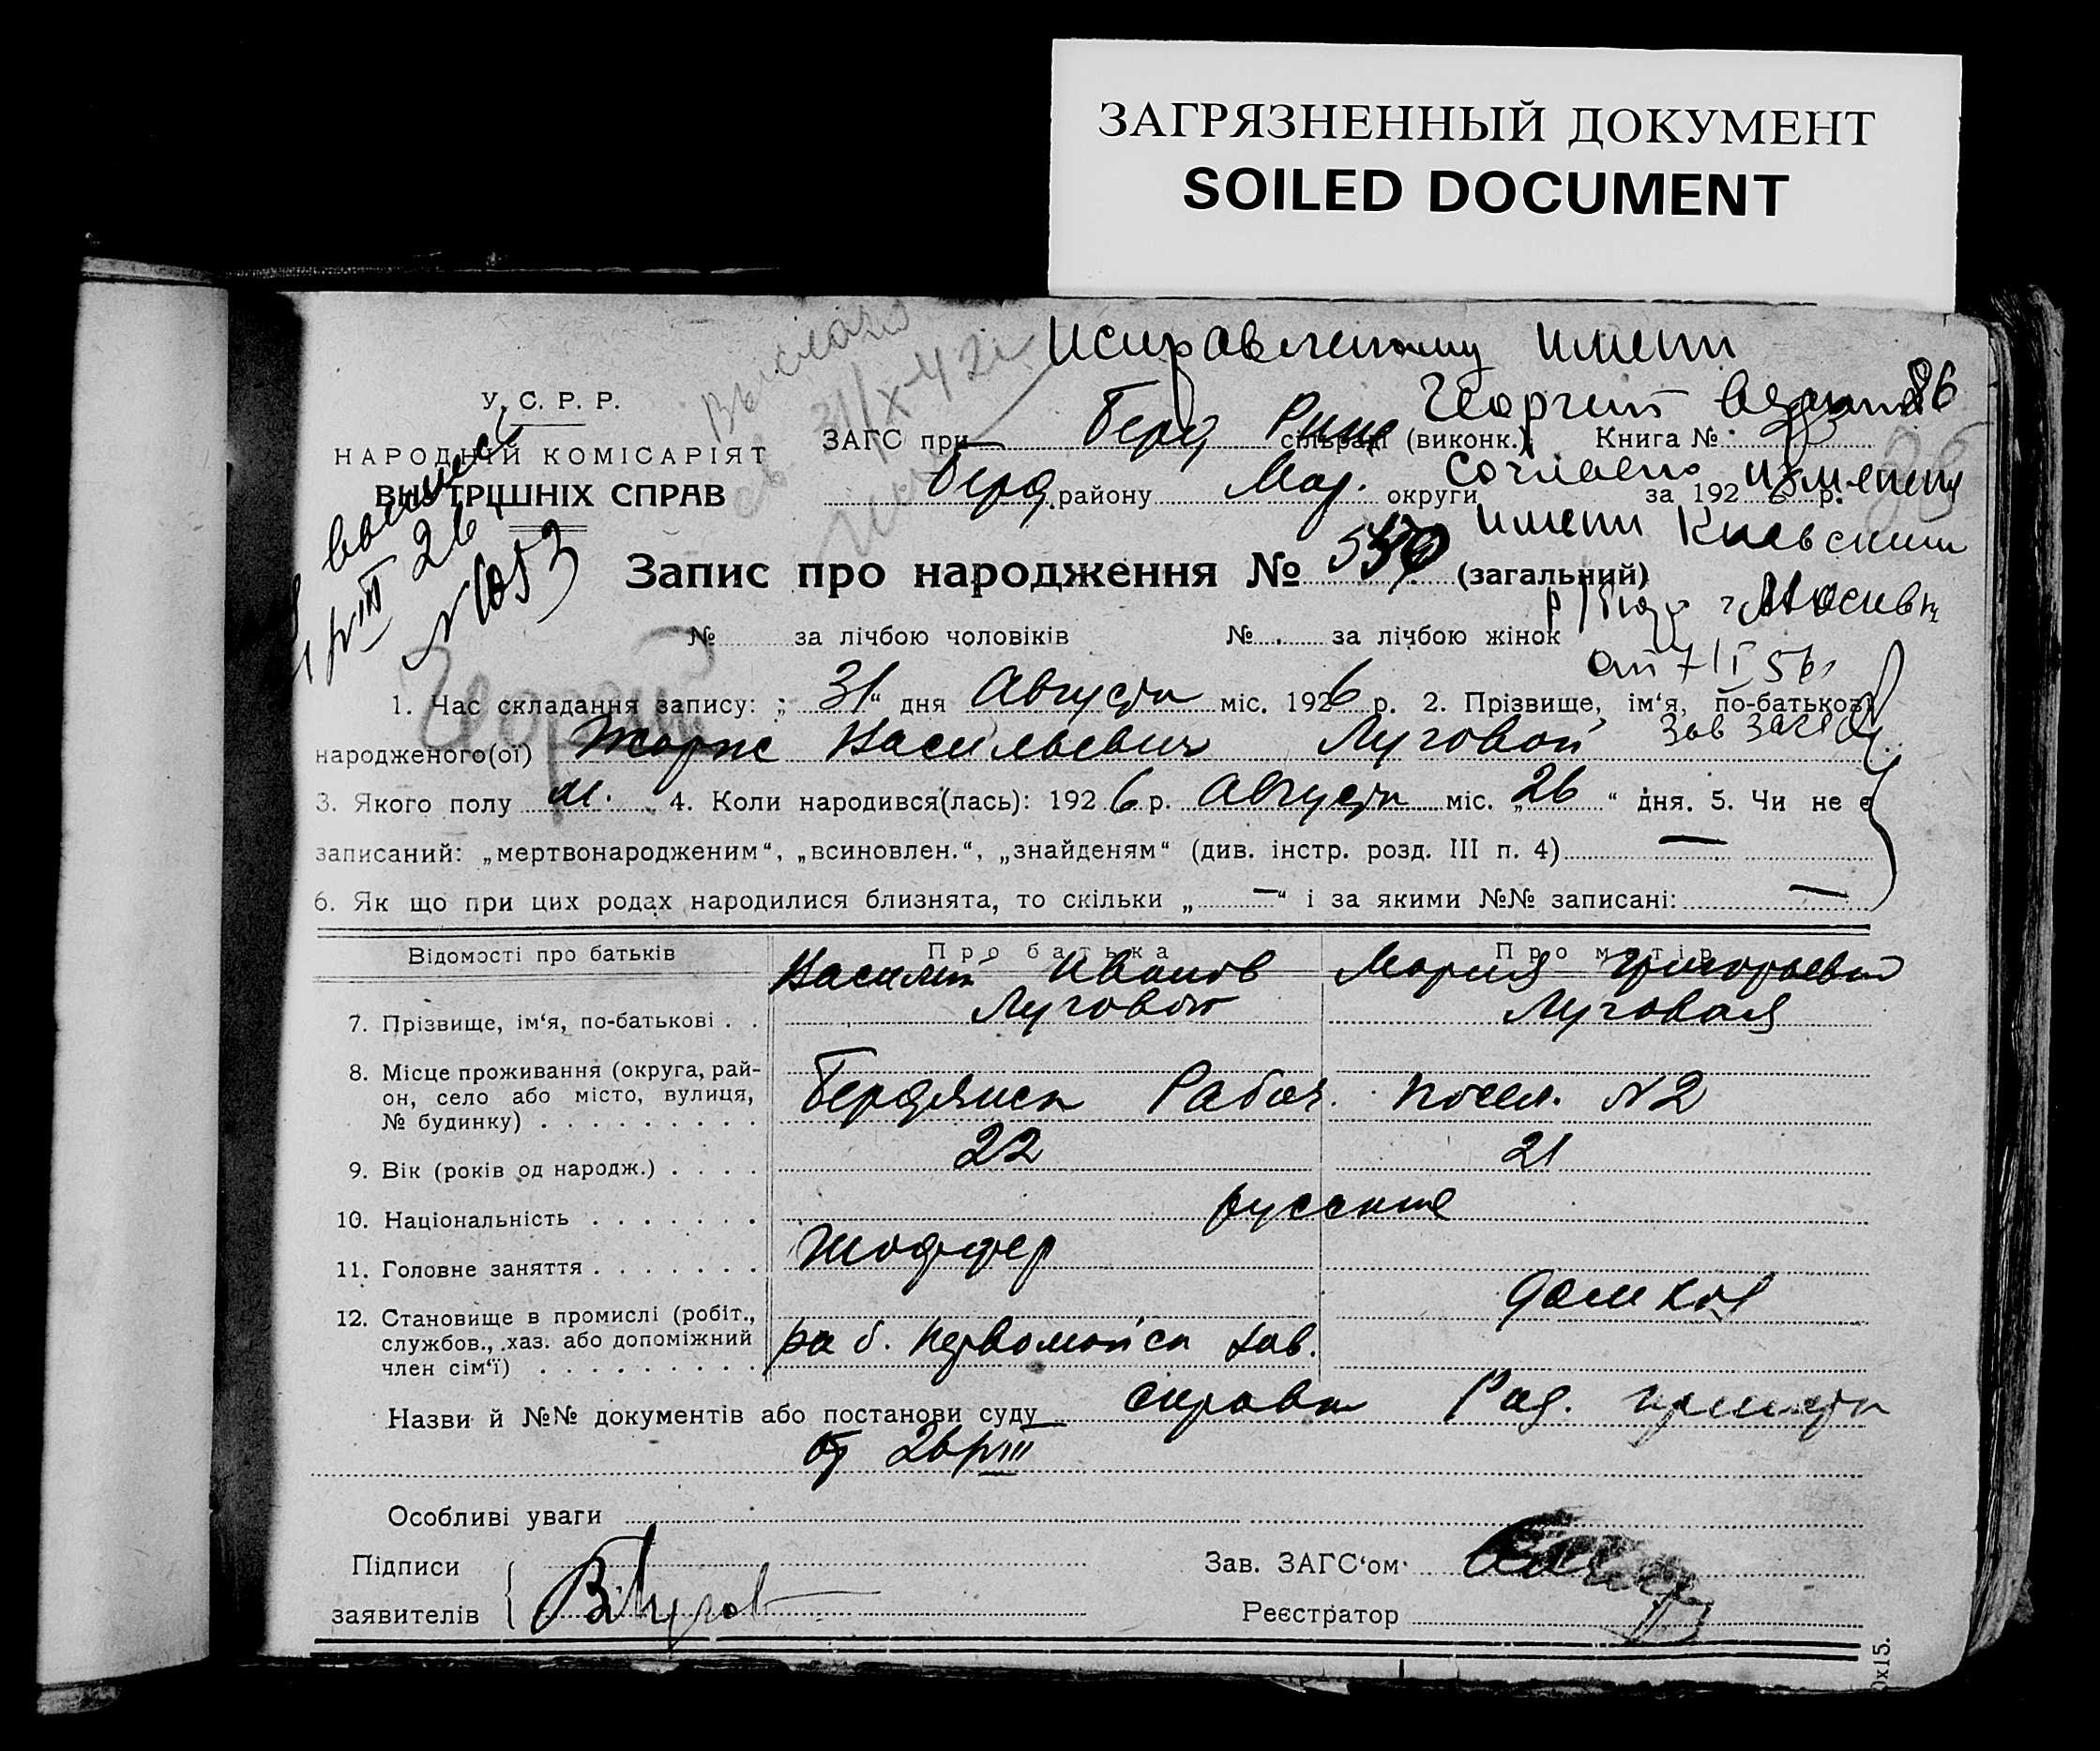 ЗАГРЯЗНЕННЫЙ ДОКУМЕНТ
SOILED DOCUMENT
Исправленному имени
Георгий
86
У. С. Р. Р.
НАРОДНІЙ КОМІСАРІЯТ
ВНУТРІШНІХ СПРАВ
Выслано
31/X-42
ЗАГС при Берд Рике сільраді (виконк.) Книга №
Берд. району Мар. округи за 192 6 р.
согласно измененя
имени Киевским
г. Москвы
от 7/I 56
Зав Загс
№ 1053
Запис про народження № (загальний)
№ за лічбою чоловіків № за лічбою жінок
Георгий
1. Час складання запису: „ 31 “ дня Августа міс. 1926 р. 2. Прізвище, ім‘я, по-батькові
народженого(ої) Жорже Васильевич Луговой
3. Якого полу м. 4. Коли народився(лась): 192 6 р. Августа міс. „ 26 “ дня. 5. Чи не є
записаний: „мертвонародженим“, „всиновлен.“, „знайденям“ (див. інстр. розд. III п. 4) —
6. Як що при цих родах народилися близнята, то скільки „ — “ і за якими №№ записані: —
Відомості про батьків Про батька Про матір
Василий Иванов Мария Григорьевна
7. Прізвище, ім‘я, по-батькові . . Луговой Луговая
8. Місце проживання (округа, рай-
он, село або місто, вулиця, Бердянск Рабоч. посел. №2
№ будинку) . . . . . . . . .
9. Вік (років од народж.) . . . . 22 21
10. Національність . . . . . . . русские
11. Головне заняття . . . . . . . Шоффер
12. Становище в промислі (робіт., дом хоз
службов., хаз. або допоміжний раб. Первомайск зав.
член сім‘ї) . . . . . . . . .
Назви й №№ документів або постанови суду справка Род. приюта
от 26/VIII
Особливі уваги
Підписи Зав. ЗАГС‘ом
заявителів В Лугов
Реєстратор